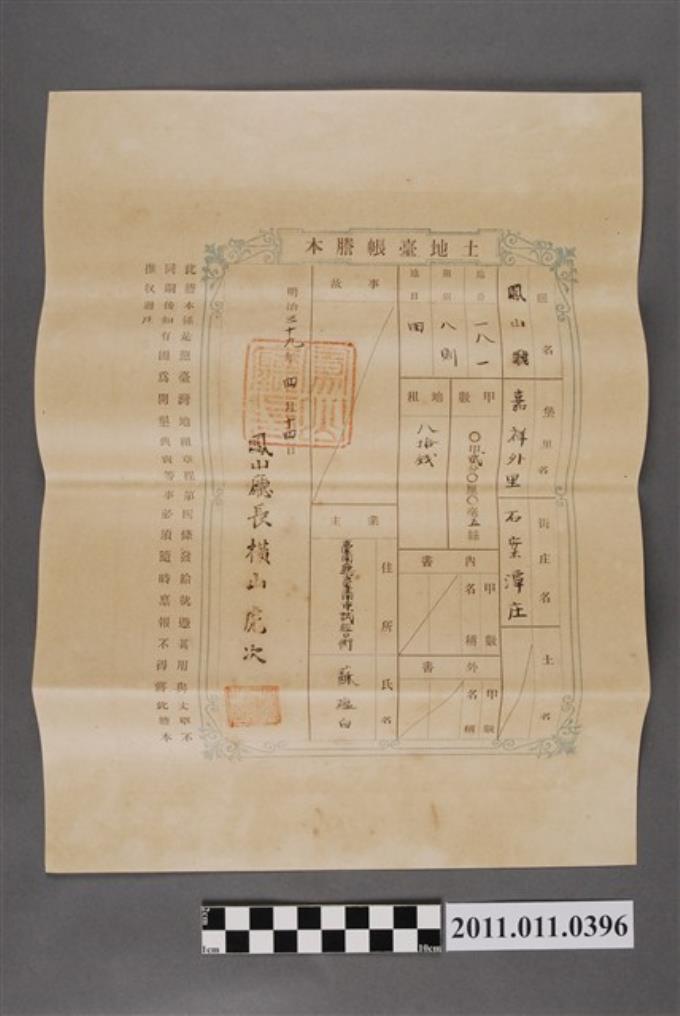 土地臺帳謄本
廳名
鳳山廳
堡里名
嘉祥外里
街庄名
石案潭庄
土名
地番
一八一
則別
八則
地目
田
甲數
〇甲貳分〇厘〇毫五絲
地租
八拾錢
內書
甲數
名稱
外書
甲數
名稱
事故
業主
住所
氏名
明治三十九年四月十四日
鳳山廳長橫山虎次
此謄本係是照臺灣地租章程第四條發給就適其用與丈單不
同嗣後如有因為開墾典賣等事必須隨時稟報不得將此謄本
推收過戶
2cm
1cm
10cm
2011.011.0396